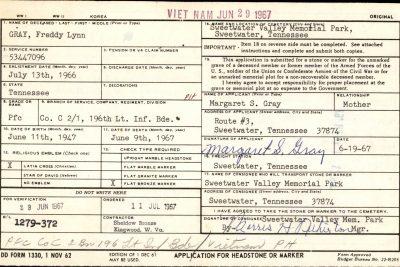 VIET NAM JUN 29 1967
WW I WW II KOREA ORIGINAL
1. NAME OF DECEASED - LAST - FIRST - MIDDLE (Print or Type)
GRAY, Freddy Lynn
Sweetwater Valley Memorial Park,
Sweetwater, Tennessee
2. SERVICE NUMBER
53447096
3. PENSION OR VA CLAIM NUMBER
IMPORTANT Item 18 on reverse side must be completed. See attached
instructions and complete and submit both copies.
4. ENLISTMENT DATE (Month, day, year)
July 13th, 1966
5. DISCHARGE DATE (Month, day, year)
This application is submitted for a stone or marker for the unmarked
grave of a deceased member or former member of the Armed Forces of the
U. S., soldier of the Union or Confederate Armies of the Civil War or for
an unmarked memorial plot for a non-recoverable deceased member.
I hereby agree to accept responsibility for proper placement at the
grave or memorial plot at no expense to the Government.
STATE
Tennessee
DECORATIONS
PH
NAME OF APPLICANT (Print or Type)
Margaret S. Gray
RELATIONSHIP
Mother
8. GRADE OR RANK
Pfc
9. BRANCH OF SERVICE, COMPANY, REGIMENT, DIVISION
Co. C 2/1, 196th Lt. Inf. Bde.
Route #3,
Sweetwater, Tennessee 37874
10. DATE OF BIRTH (Month, day, year)
June 11th, 1947
DATE OF DEATH (Month, day, year)
June 9th, 1967
SIGNATURE OF APPLICANT
Margaret S. Gray
DATE
6-19-67
RELIGIOUS EMBLEM (Check one)
CHECK TYPE REQUIRED
X LATIN CROSS (Christian)
STAR OF DAVID (Hebrew)
NO EMBLEM
UPRIGHT MARBLE HEADSTONE
FLAT MARBLE MARKER
FLAT GRANITE MARKER
X FLAT BRONZE MARKER
FREIGHT STATION
Sweetwater, Tennessee
NAME OF CONSIGNEE WHO WILL TRANSPORT STONE OR MARKER
Sweetwater Valley Memorial Park
DO NOT WRITE HERE
FOR VERIFICATION
29 JUN 1967
ORDERED
11 JUL 1967
Sweetwater, Tennessee 37874
I HAVE AGREED TO TAKE THE STONE OR MARKER TO THE CEMETERY.
B/L
1279-372
CONTRACTOR
Kingwood, W. Va.
SIGNATURE OF CONSIGNEE
Sweetwater Valley Mem. Park
By Mgr.
DD FORM 1330, 1 NOV 62
EDITION OF 1 DEC 61
MAY BE USED.
APPLICATION FOR HEADSTONE OR MARKER
Form Approved